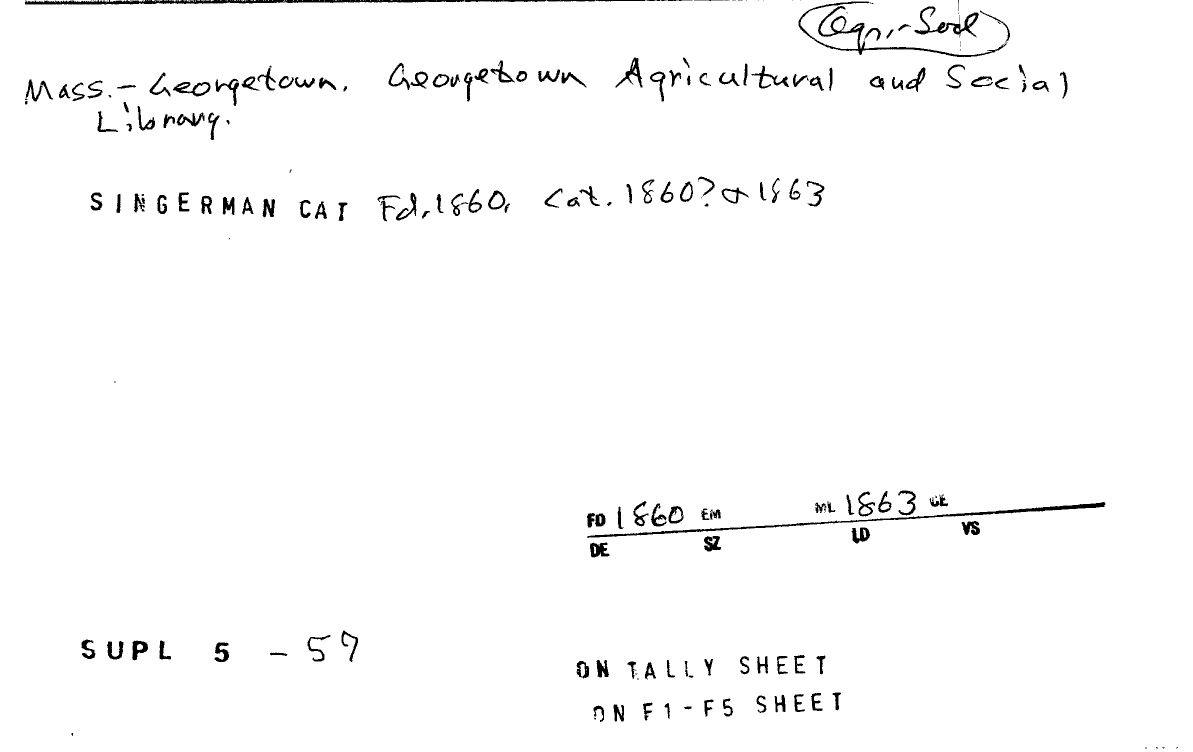 Agri-Socl
Mass.- Georgetown. Georgetown Agricultural and Social
Library.
SINGERMAN CAT Fd. 1860. Cat. 1860? & 1863
FD 1860 EM ML 1863 CE
DE SZ LD VS
SUPL 5 - 57
ON TALLY SHEET
ON F1-F5 SHEET